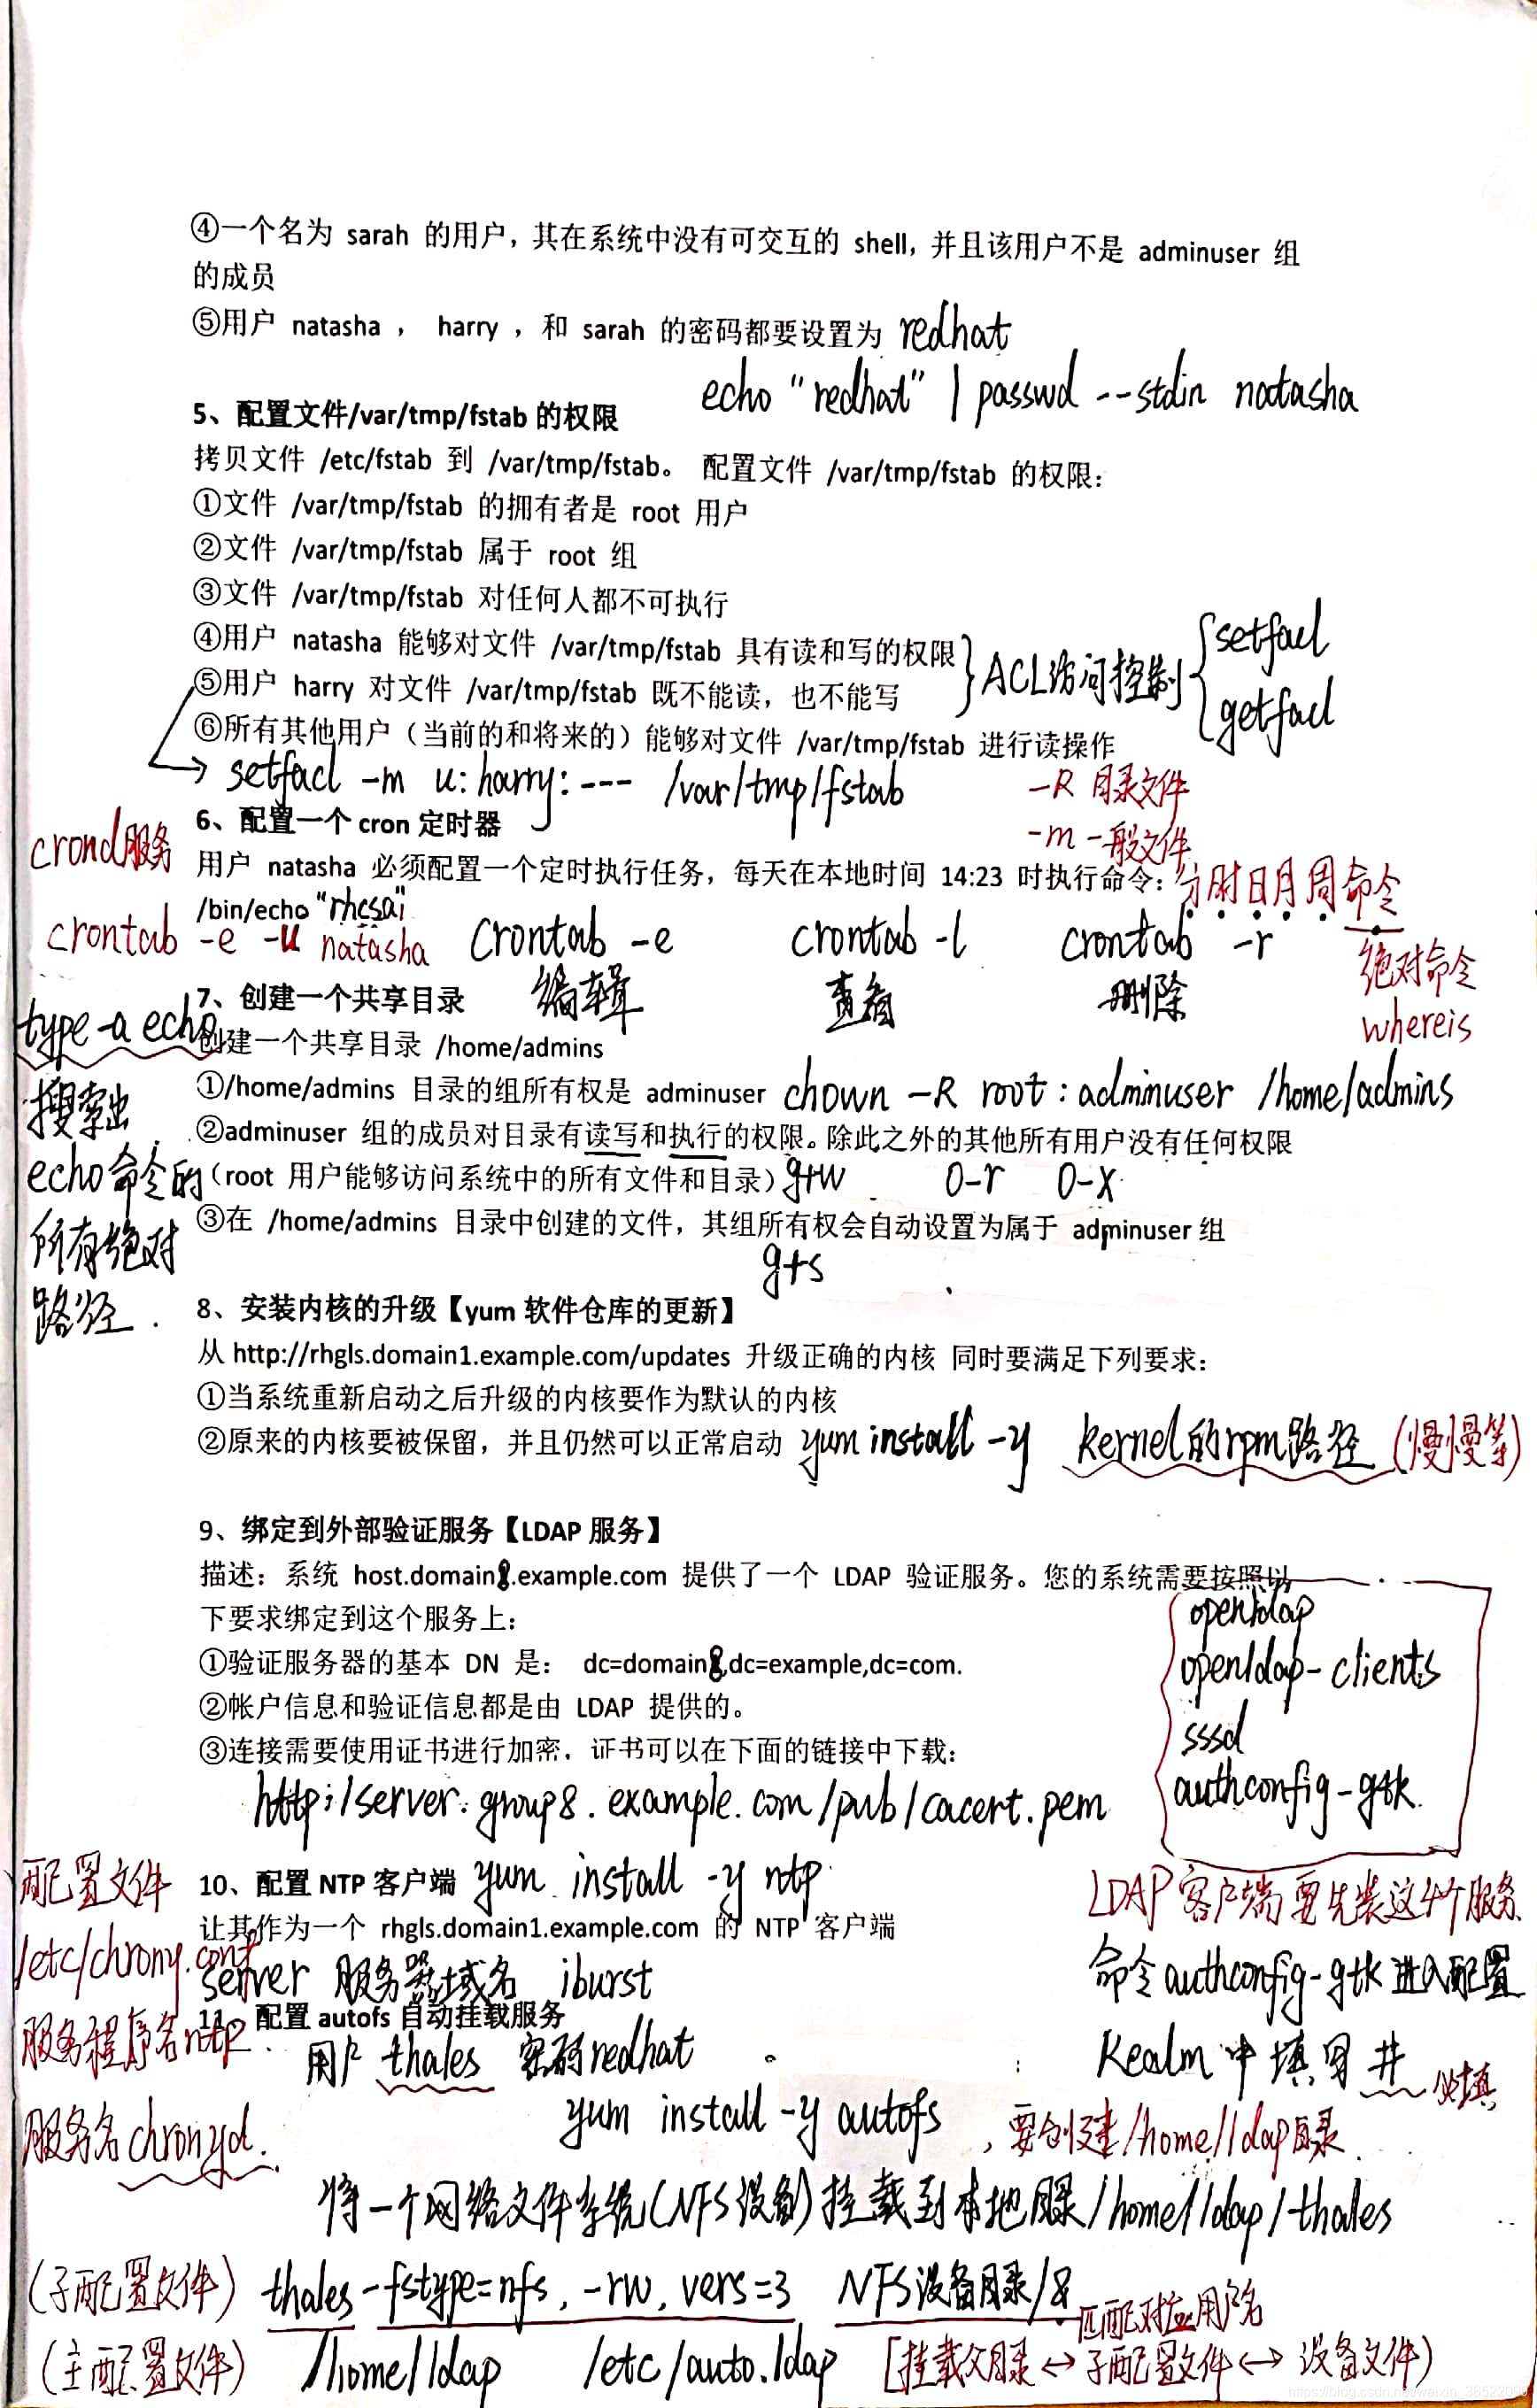 ④一个名为 sarah 的用户，其在系统中没有可交互的 shell，并且该用户不是 adminuser 组
的成员
⑤用户 natasha ， harry ，和 sarah 的密码都要设置为 redhat
echo "redhat" | passwd --stdin natasha
5、配置文件/var/tmp/fstab 的权限
拷贝文件 /etc/fstab 到 /var/tmp/fstab。 配置文件 /var/tmp/fstab 的权限：
①文件 /var/tmp/fstab 的拥有者是 root 用户
②文件 /var/tmp/fstab 属于 root 组
③文件 /var/tmp/fstab 对任何人都不可执行
④用户 natasha 能够对文件 /var/tmp/fstab 具有读和写的权限
⑤用户 harry 对文件 /var/tmp/fstab 既不能读，也不能写
ACL访问控制
setfacl
getfacl
⑥所有其他用户（当前的和将来的）能够对文件 /var/tmp/fstab 进行读操作
→ setfacl -m u:harry:--- /var/tmp/fstab
-R 目录文件
-m 一般文件
6、配置一个 cron 定时器
crond服务
用户 natasha 必须配置一个定时执行任务，每天在本地时间 14:23 时执行命令：
分时日月周命令
/bin/echo "rhcsa"
crontab -e -u natasha
crontab -e
crontab -l
crontab -r
编辑
查看
删除
绝对命令
whereis
7、创建一个共享目录
type -a echo
搜索出
echo命令的
所有绝对
路径.
创建一个共享目录 /home/admins
①/home/admins 目录的组所有权是 adminuser chown -R root:adminuser /home/admins
②adminuser 组的成员对目录有读写和执行的权限。除此之外的其他所有用户没有任何权限
（root 用户能够访问系统中的所有文件和目录）g+w o-r o-x
③在 /home/admins 目录中创建的文件，其组所有权会自动设置为属于 adminuser 组
g+s
8、安装内核的升级【yum 软件仓库的更新】
从 http://rhgls.domain1.example.com/updates 升级正确的内核 同时要满足下列要求：
①当系统重新启动之后升级的内核要作为默认的内核
②原来的内核要被保留，并且仍然可以正常启动 yum install -y kernel的rpm路径 (慢慢等)
9、绑定到外部验证服务【LDAP 服务】
描述：系统 host.domain8.example.com 提供了一个 LDAP 验证服务。您的系统需要按照以
下要求绑定到这个服务上：
①验证服务器的基本 DN 是： dc=domain8,dc=example,dc=com.
②帐户信息和验证信息都是由 LDAP 提供的。
③连接需要使用证书进行加密，证书可以在下面的链接中下载：
http:/server.group8.example.com/pub/cacert.pem
openldap
openldap-clients
sssd
authconfig-gtk
LDAP客户端要先装这4个服务
命令authconfig-gtk进入配置
Realm中填写# 必填
10、配置 NTP 客户端 yum install -y ntp
让其作为一个 rhgls.domain1.example.com 的 NTP 客户端
server 服务器域名 iburst
配置文件
/etc/chrony.conf
服务程序名ntp
服务名chronyd.
11、配置 autofs 自动挂载服务
用户 thales 密码redhat
yum install -y autofs
, 要创建/home/ldap目录
将一个网络文件系统(NFS设备)挂载到本地目录/home/ldap/thales
(子配置文件) thales -fstype=nfs, -rw, vers=3 NFS设备目录/&
匹配对应用户名
(主配置文件) /home/ldap /etc/auto.ldap [挂载父目录↔子配置文件↔设备文件)